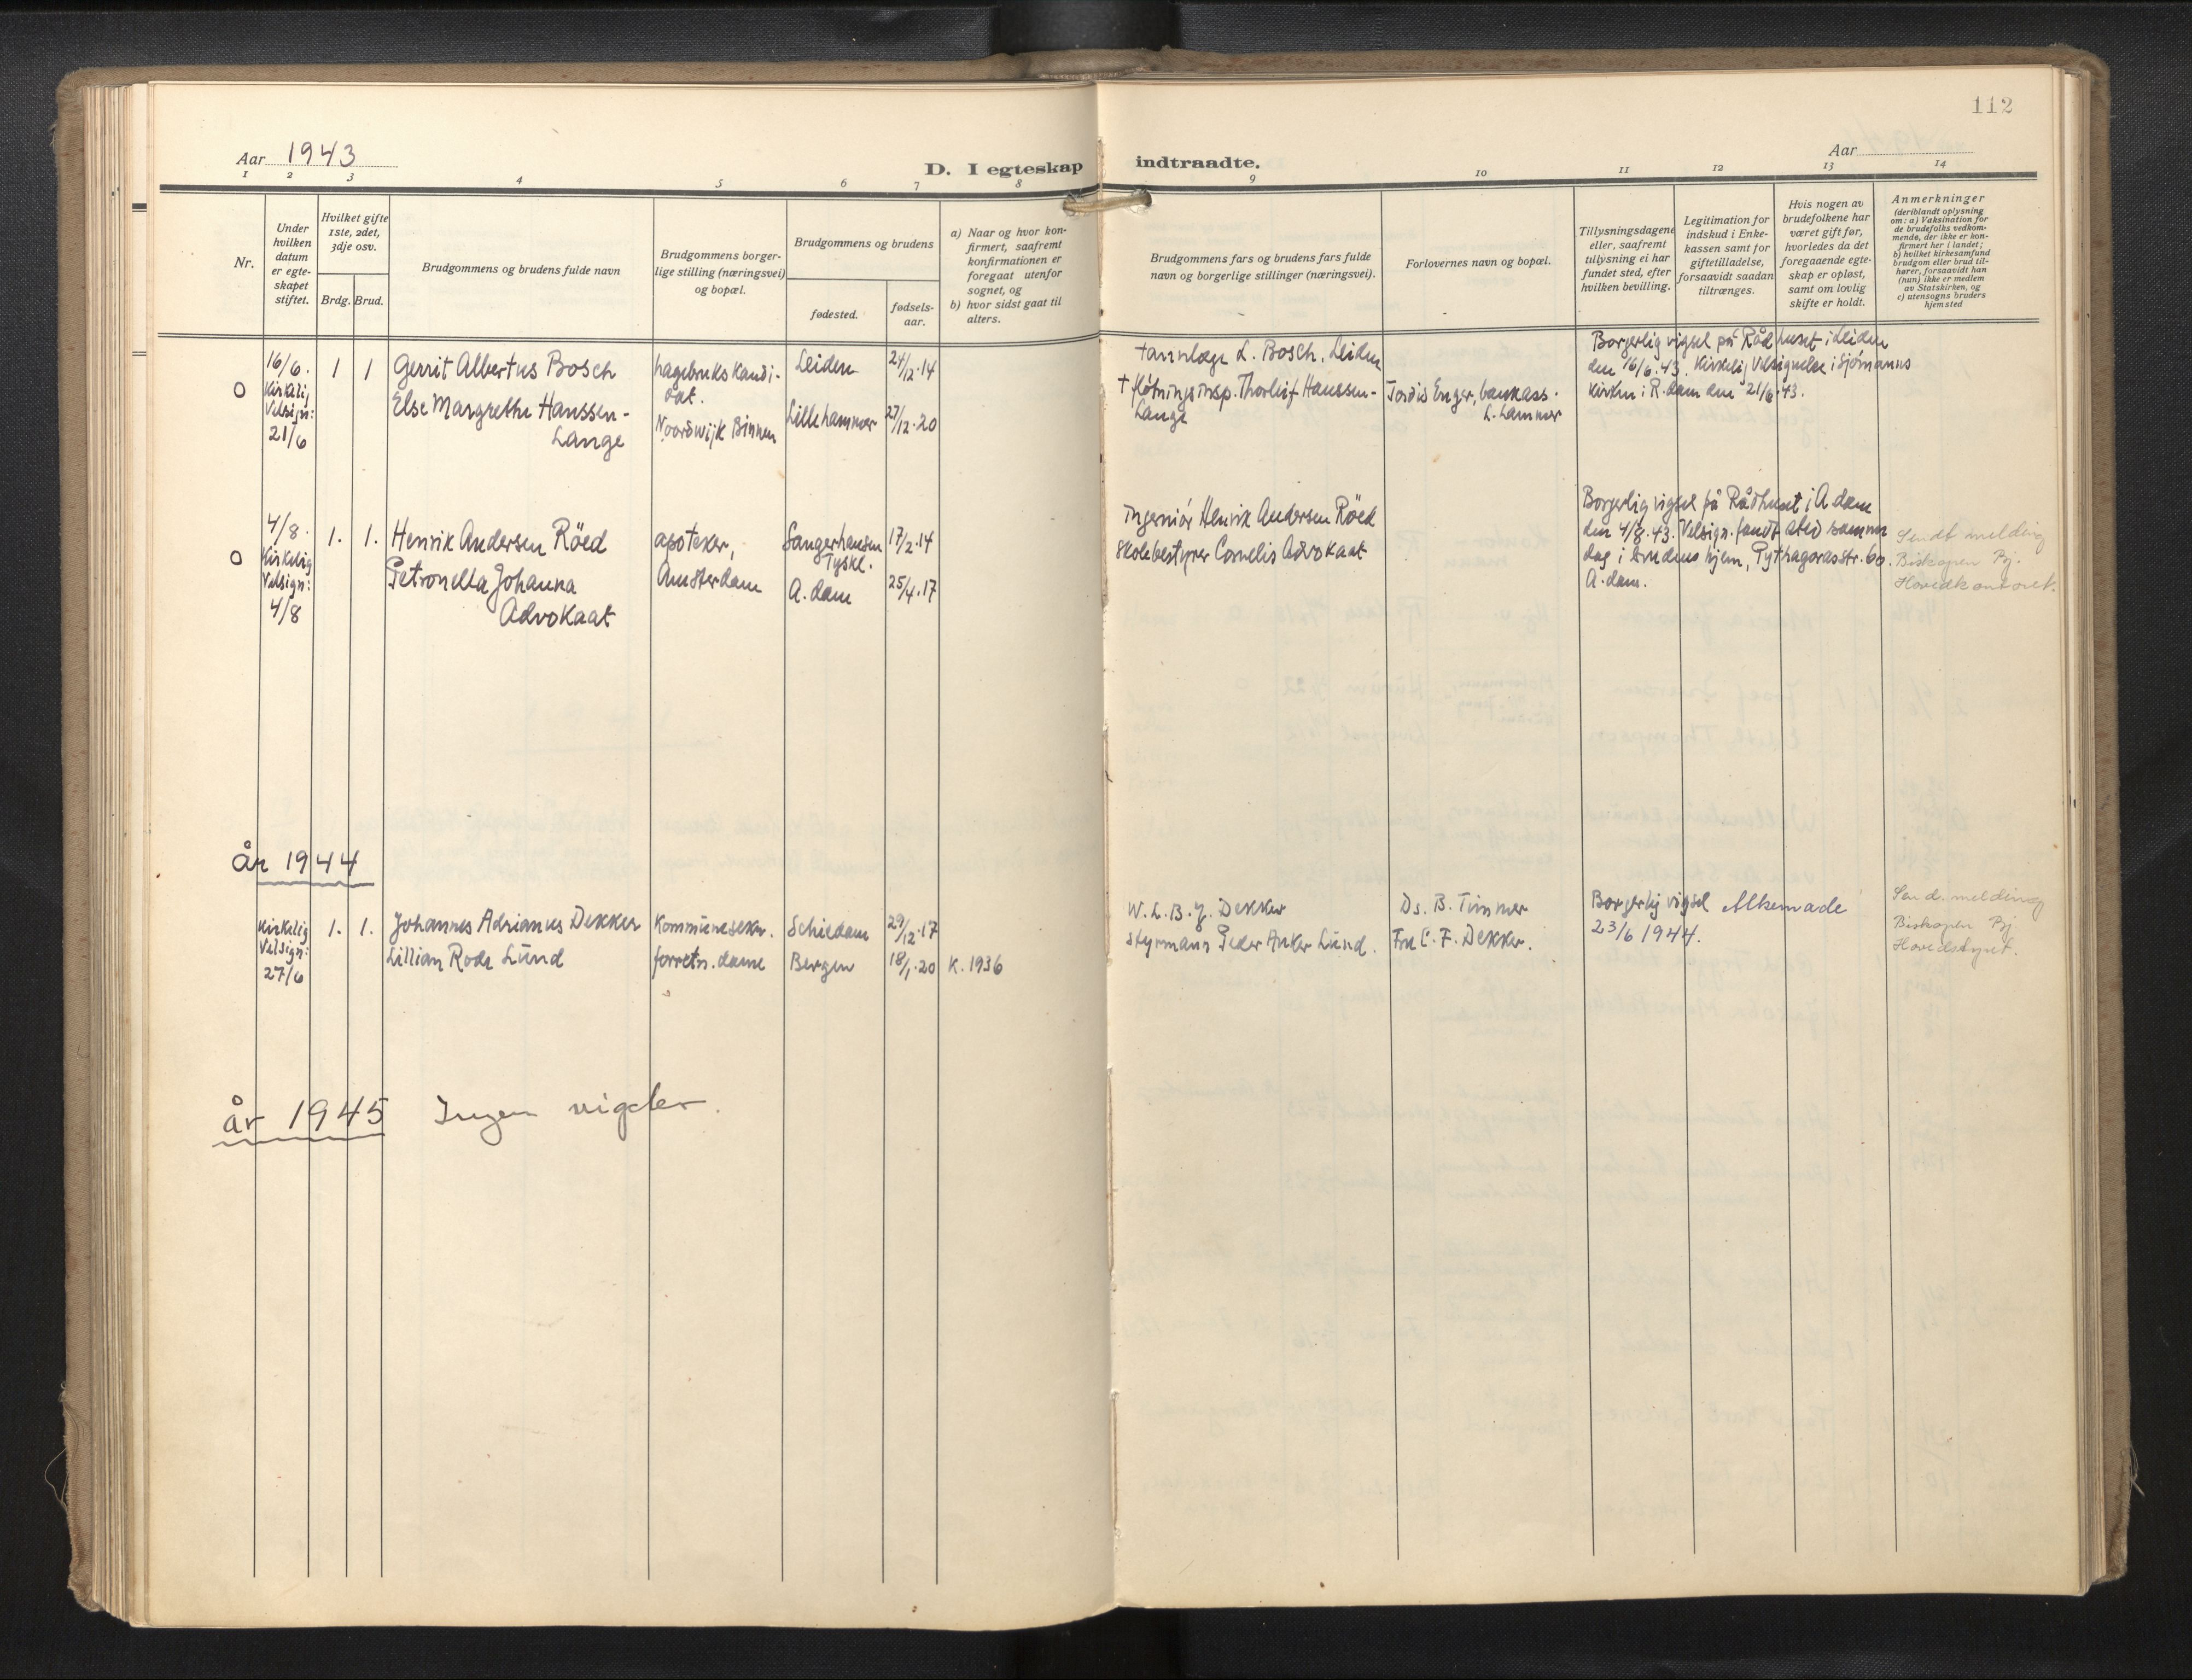 112
Aar 1943
D. I egteskap indtraadte.
Aar
1 2 3 4 5 6 7 8 9 10 11 12 13 14
Nr.
Under hvilken datum er egte-skapet stiftet.
Hvilket gifte 1ste, 2det, 3dje osv.
Brdg. Brud.
Brudgommens og brudens fulde navn
Brudgommens borger-lige stilling (næringsvei) og bopæl.
Brudgommens og brudens
fødested.
fødsels-aar.
a) Naar og hvor kon-firmert, saafremt konfirmationen er foregaat utenfor sognet, og
b) hvor sidst gaat til alters.
Brudgommens fars og brudens fars fulde navn og borgerlige stillinger (næringsvei).
Forlovernes navn og bopæl.
Tillysningsdagene eller, saafremt tillysning ei har fundet sted, efter hvilken bevilling.
Legitimation for indskud i Enke-kassen samt for giftetilladelse, forsaavidt saadan tiltrænges.
Hvis nogen av brudefolkene har været gift før, hvorledes da det foregaaende egte-skap er opløst, samt om lovlig skifte er holdt.
Anmerkninger (deriblandt oplysning om: a) Vaksination for de brudefolks vedkom-mende, der ikke er kon-firmert her i landet; b) hvilket kirkesamfund brudgom eller brud til-hører, forsaavidt han (hun) ikke er medlem av Statskirken, og c) utensogns bruders hjemsted
O
16/6.
Kirkelig
Velsign:
21/6
1 1
Gerrit Albertus Bosch
Else Margrethe Hanssen-
Lange
hagebrukskandi-
dat.
Noordwijk Binnen
Leiden
Lillehammer
24/12.14
27/12.20
tannlæge L. Bosch, Leiden
† fløtningsinsp. Thorleif Hanssen-
Lange
Jordis Enger, bankass.
L.hammer
Borgerlig vigsel på Rådhuset i Leiden
den 16/6.43. Kirkelig Velsignelse i Sjømanns
kirken i R.dam den 21/6.43.
O
4/8.
Kirkelig
Velsign:
4/8
1. 1.
Henrik Andersen Röed
Petronella Johanna
Advokaat
apoteker,
Amsterdam
Sangerhausen
Tyskl.
A.dam
17/2.14
25/4.17
ingeniør Henrik Andersen Röed
skolebestyrer Cornelis Advokaat
Borgerlig vigsel på Rådhuset i A dam
den 4/8.43. Velsign. fandt sted samme
dag i brudens hjem, Pythagorasstr. 60.
A.dam.
Sendt melding
Biskopen Bj.
Hovedkontoret.
år 1944
Kirkelig
Velsign:
27/6
1. 1.
Johannes Adrianus Dekker
Lillian Rode Lünd
Kommunesekr.
forretn.dame
Schiedam
Bergen
29/12.17
18/1.20
K. 1936
W. L. B. J. Dekker
Styrmann Peder Anker Lünd.
Ds. B. Timmer
Fru C. F. Dekker.
Borgerlig vigsel Alkemade
23/6 1944.
Send. melding
Biskopen Bj
Hovedstyret.
år 1945 Ingen vigsler.